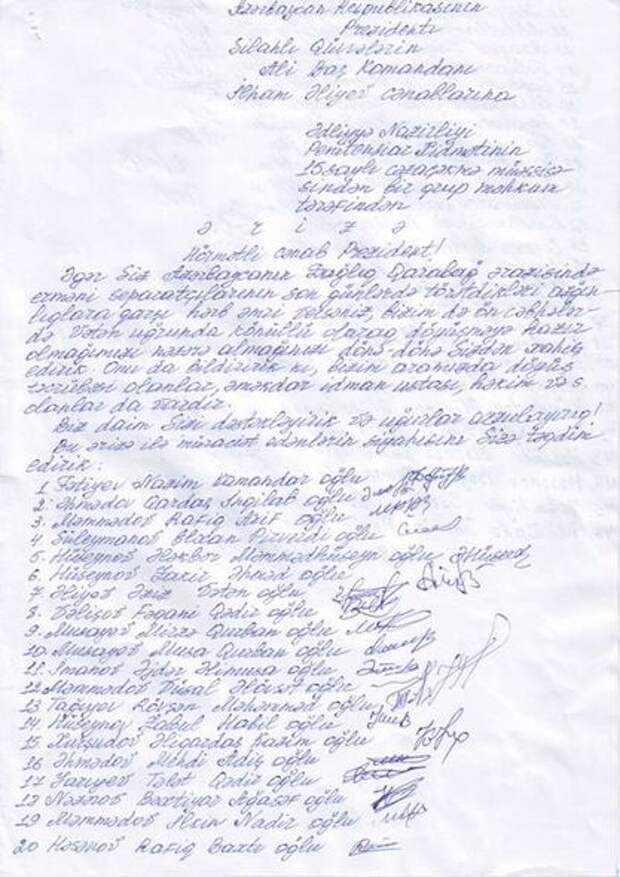 Azərbaycan Respublikasının
Prezidenti
Silahlı Qüvvələrin
Ali Baş Komandanı
İlham Əliyev cənablarına
Ədliyyə Nazirliyi
Penitensiar Xidmətinin
15 saylı cəzaçəkmə müəssisə
sindən bir qrup məhkum
tərəfindən
ə r i z ə
Hörmətli cənab Prezident!
Əgər Siz Azərbaycanın Dağlıq Qarabağ ərazisində
erməni separatçılarının son günlərdə törətdikləri azğın-
lıqlara qarşı hərb əmri versəniz, bizim də ön cəbhələr-
də Vətən uğrunda könüllü olaraq döyüşməyə hazır
olmağımızı nəzərə almağınızı dönə-dönə Sizdən xahiş
edirik. Onu da bildiririk ki, bizim aramızda döyüş
təcrübəsi olanlar, əməkdar idman ustası, həkim və s.
olanlar da vardır.
Biz daim Sizi dəstəkləyirik və uğurlar arzulayırıq!
Bu ərizə ilə müraciət edənlərin siyahısını Sizə təqdim
edirik:
1. Fətiyev Nazim Kamandar oğlu
2. Əhmədov Qardaş İnqilab oğlu
3. Məmmədov Rafiq Arif oğlu
4. Süleymanov Eldan Pirverdi oğlu
5. Hüseynov Ələkbər Məmmədhüseyn oğlu
6. Hüseynov Zakir Əhməd oğlu
7. Əliyev Əziz Vətən oğlu
8. Vəlişov Fəqani Qədir oğlu
9. Musayev Mirzə Qurban oğlu
10. Musayev Musa Qurban oğlu
11. İmanov Əjdər Əlimusa oğlu
12. Məmmədov Vüsal Əlövsət oğlu
13. Tağıyev Rövşən Məhəmməd oğlu
14. Hüseynov Zabul Habil oğlu
15. Xurşudov Əliqardaş Kazım oğlu
16 Əhmədov Mehdi Adış oğlu
17 Zarıyev Tələt Qədir oğlu
18 Nəzərov Bəxtiyar Ağasəf oğlu
19 Məmmədov Elçin Nadir oğlu
20 Həsənov Rafiq Baxtı oğlu